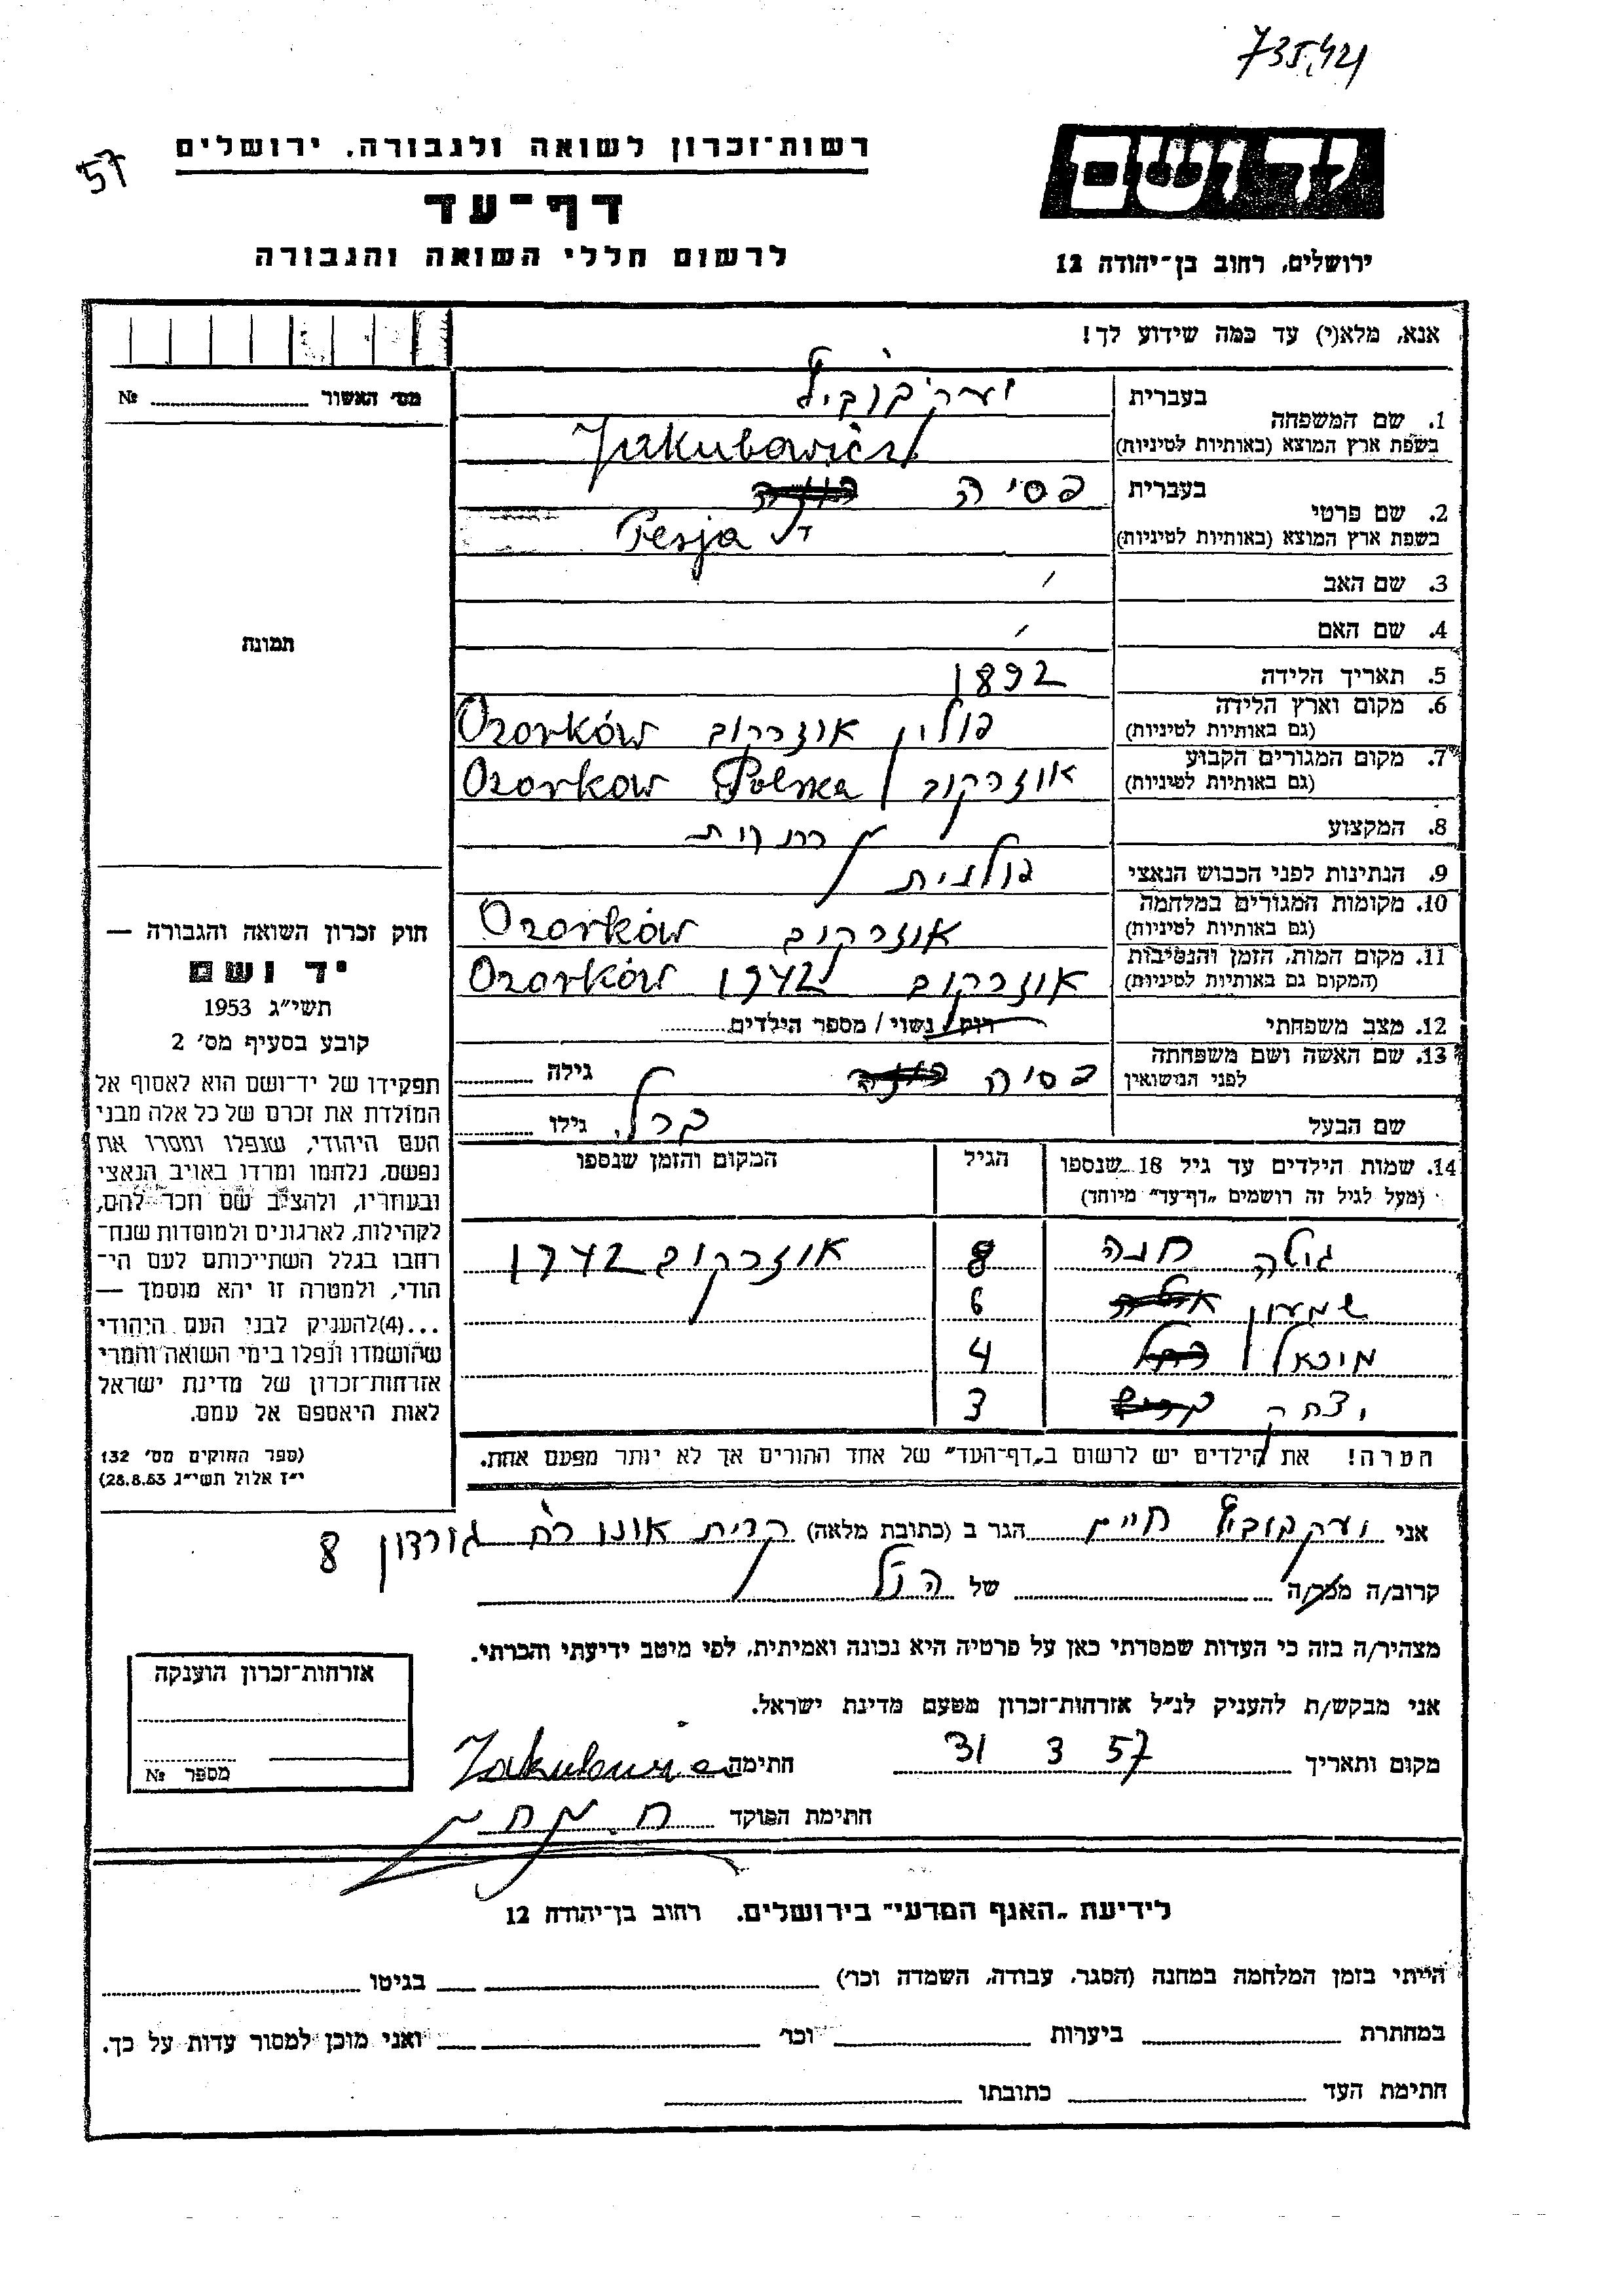 735,421
57
רשות־זכרון לשואה ולגבורה, ירושלים
דף־עד
לרשום חללי השואה והגבורה
יד ושם
ירושלים, רחוב בן־יהודה 12
אנא, מלא(י) עד כמה שידוע לך!
מס׳ האשור №
1. שם המשפחה בעברית יעקבוביץ
בשפת ארץ המוצא (באותיות לטיניות) Jakubowicz
2. שם פרטי בעברית פסיה
בשפת ארץ המוצא (באותיות לטיניות) Pesja
3. שם האב
4. שם האם
תמונה
5. תאריך הלידה 1892
6. מקום וארץ הלידה (גם באותיות לטיניות) פולין אוזרקוב Ozorków
7. מקום המגורים הקבוע (גם באותיות לטיניות) אוזרקוב Polska Ozorkow
8. המקצוע
9. הנתינות לפני הכבוש הנאצי פולנית
10. מקומות המגורים במלחמה (גם באותיות לטיניות) אוזרקוב Ozorków
11. מקום המות, הזמן והנסיבות (המקום גם באותיות לטיניות) אוזרקוב 1942 Ozorków
12. מצב משפחתי רווק / נשוי / מספר הילדים
13. שם האשה ושם משפחתה לפני הנשואין פסיה גילה
שם הבעל גילו
14. שמות הילדים עד גיל 18 שנספו הגיל המקום והזמן שנספו
(מעל לגיל זה רושמים "דף־עד" מיוחד)
חנה 8 אוזרקוב 1942
שמעון 6
מיכאל 4
יצחק 3
הערה! את הילדים יש לרשום ב"דף־העד" של אחד ההורים אך לא יותר מפעם אחת.
חוק זכרון השואה והגבורה —
יד ושם
תשי"ג 1953
קובע בסעיף מס׳ 2
תפקידו של יד־ושם הוא לאסוף אל
המולדת את זכרם של כל אלה מבני
העם היהודי, שנפלו ומסרו את
נפשם, נלחמו ומרדו באויב הנאצי
ובעוזריו, ולהציב שם וזכר להם,
לקהילות, לארגונים ולמוסדות שנח־
רבו בגלל השתייכותם לעם הי־
הודי, ולמטרה זו יהא מוסמך —
...(4) להעניק לבני העם היהודי
שהושמדו ונפלו בימי השואה והמרי
אזרחות־זכרון של מדינת ישראל
לאות היאספם אל עמם.
(ספר החוקים מס׳ 132
י"ז אלול תשי"ג 28.8.53)
אני יעקבוביץ חיים הגר ב (כתובת מלאה) קרית אונו רח גורדון 8
קרוב/ה מכר/ה של הנ"ל
מצהיר/ה בזה כי העדות שמסרתי כאן על פרטיה היא נכונה ואמיתית, לפי מיטב ידיעתי והכרתי.
אני מבקש/ת להעניק לנ"ל אזרחות־זכרון מטעם מדינת ישראל.
מקום ותאריך 31 3 57 חתימה
חתימת הפוקד
אזרחות־זכרון הוענקה
מספר №
לידיעת "האגף המדעי" בירושלים, רחוב בן־יהודה 12
הייתי בזמן המלחמה במחנה (הסגר, עבודה, השמדה וכו׳) בגיטו
במחתרת ביערות וכו׳ ואני מוכן למסור עדות על כך.
חתימת העד כתובתו